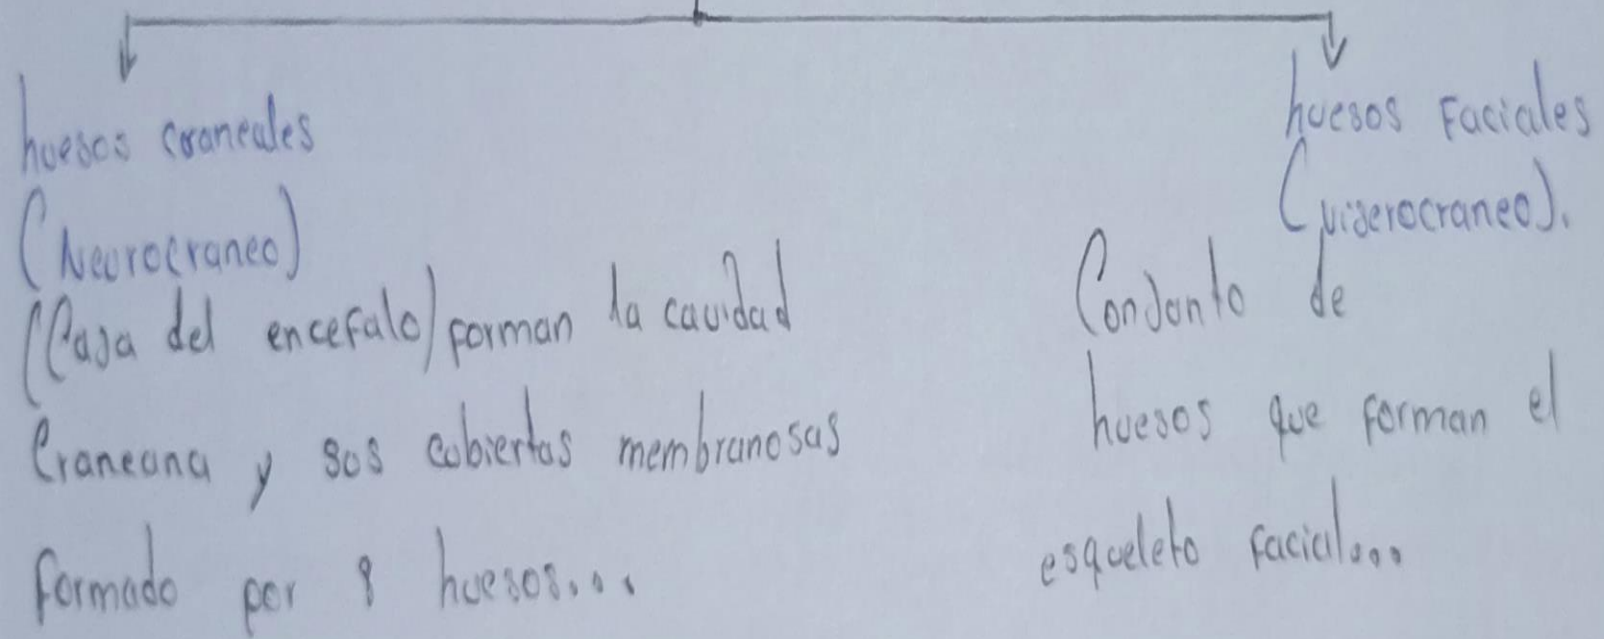 huesos craneales
(Neurocraneo)
(Casa del encefalo) forman la cavidad
Craneana y sus cubiertas membranosas
formado por 8 huesos...
huesos Faciales
(viserocraneo).
Conjunto de
huesos que forman el
esqueleto facial...